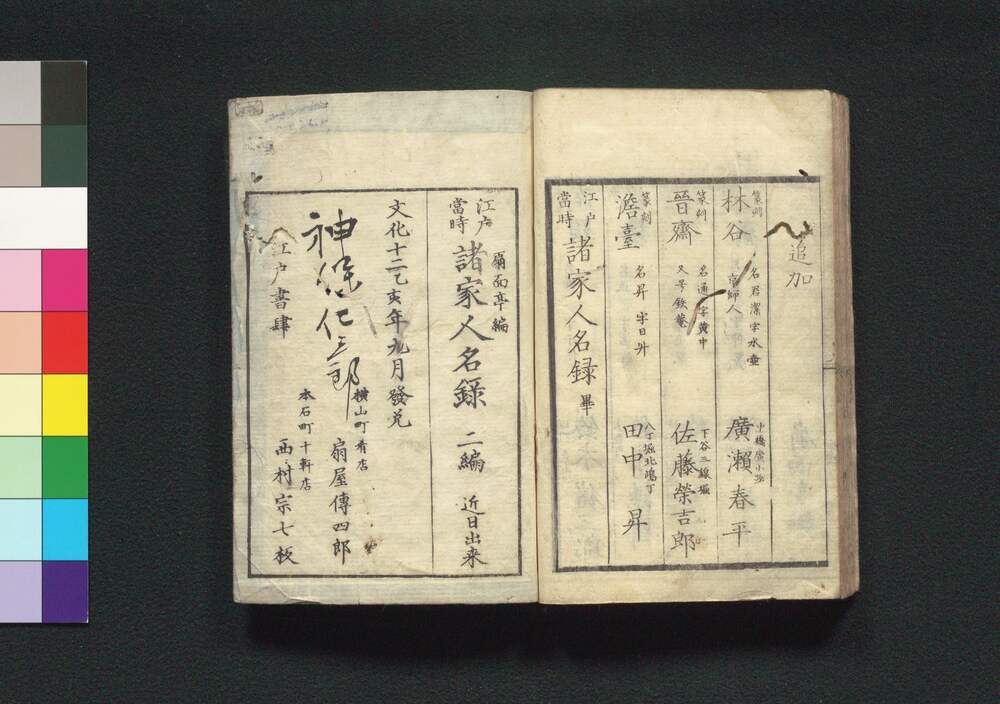 追加
篆刻
林谷
名君潔字水壷
京師人
中橋廣小路
廣瀬春平
篆刻
晉齋
名通字黄中
又号鉄菴
下谷三線堀
佐藤榮吉郎
篆刻
澹臺
名昇字日升
八丁堀北嶋丁
田中昇
江戸當時諸家人名録畢
扇面亭編
江戸當時諸家人名録二編近日出来
文化十二乙亥年九月發兌
江戸書肆
横山町肴店
扇屋傳四郎
本石町十軒店
西村宗七板